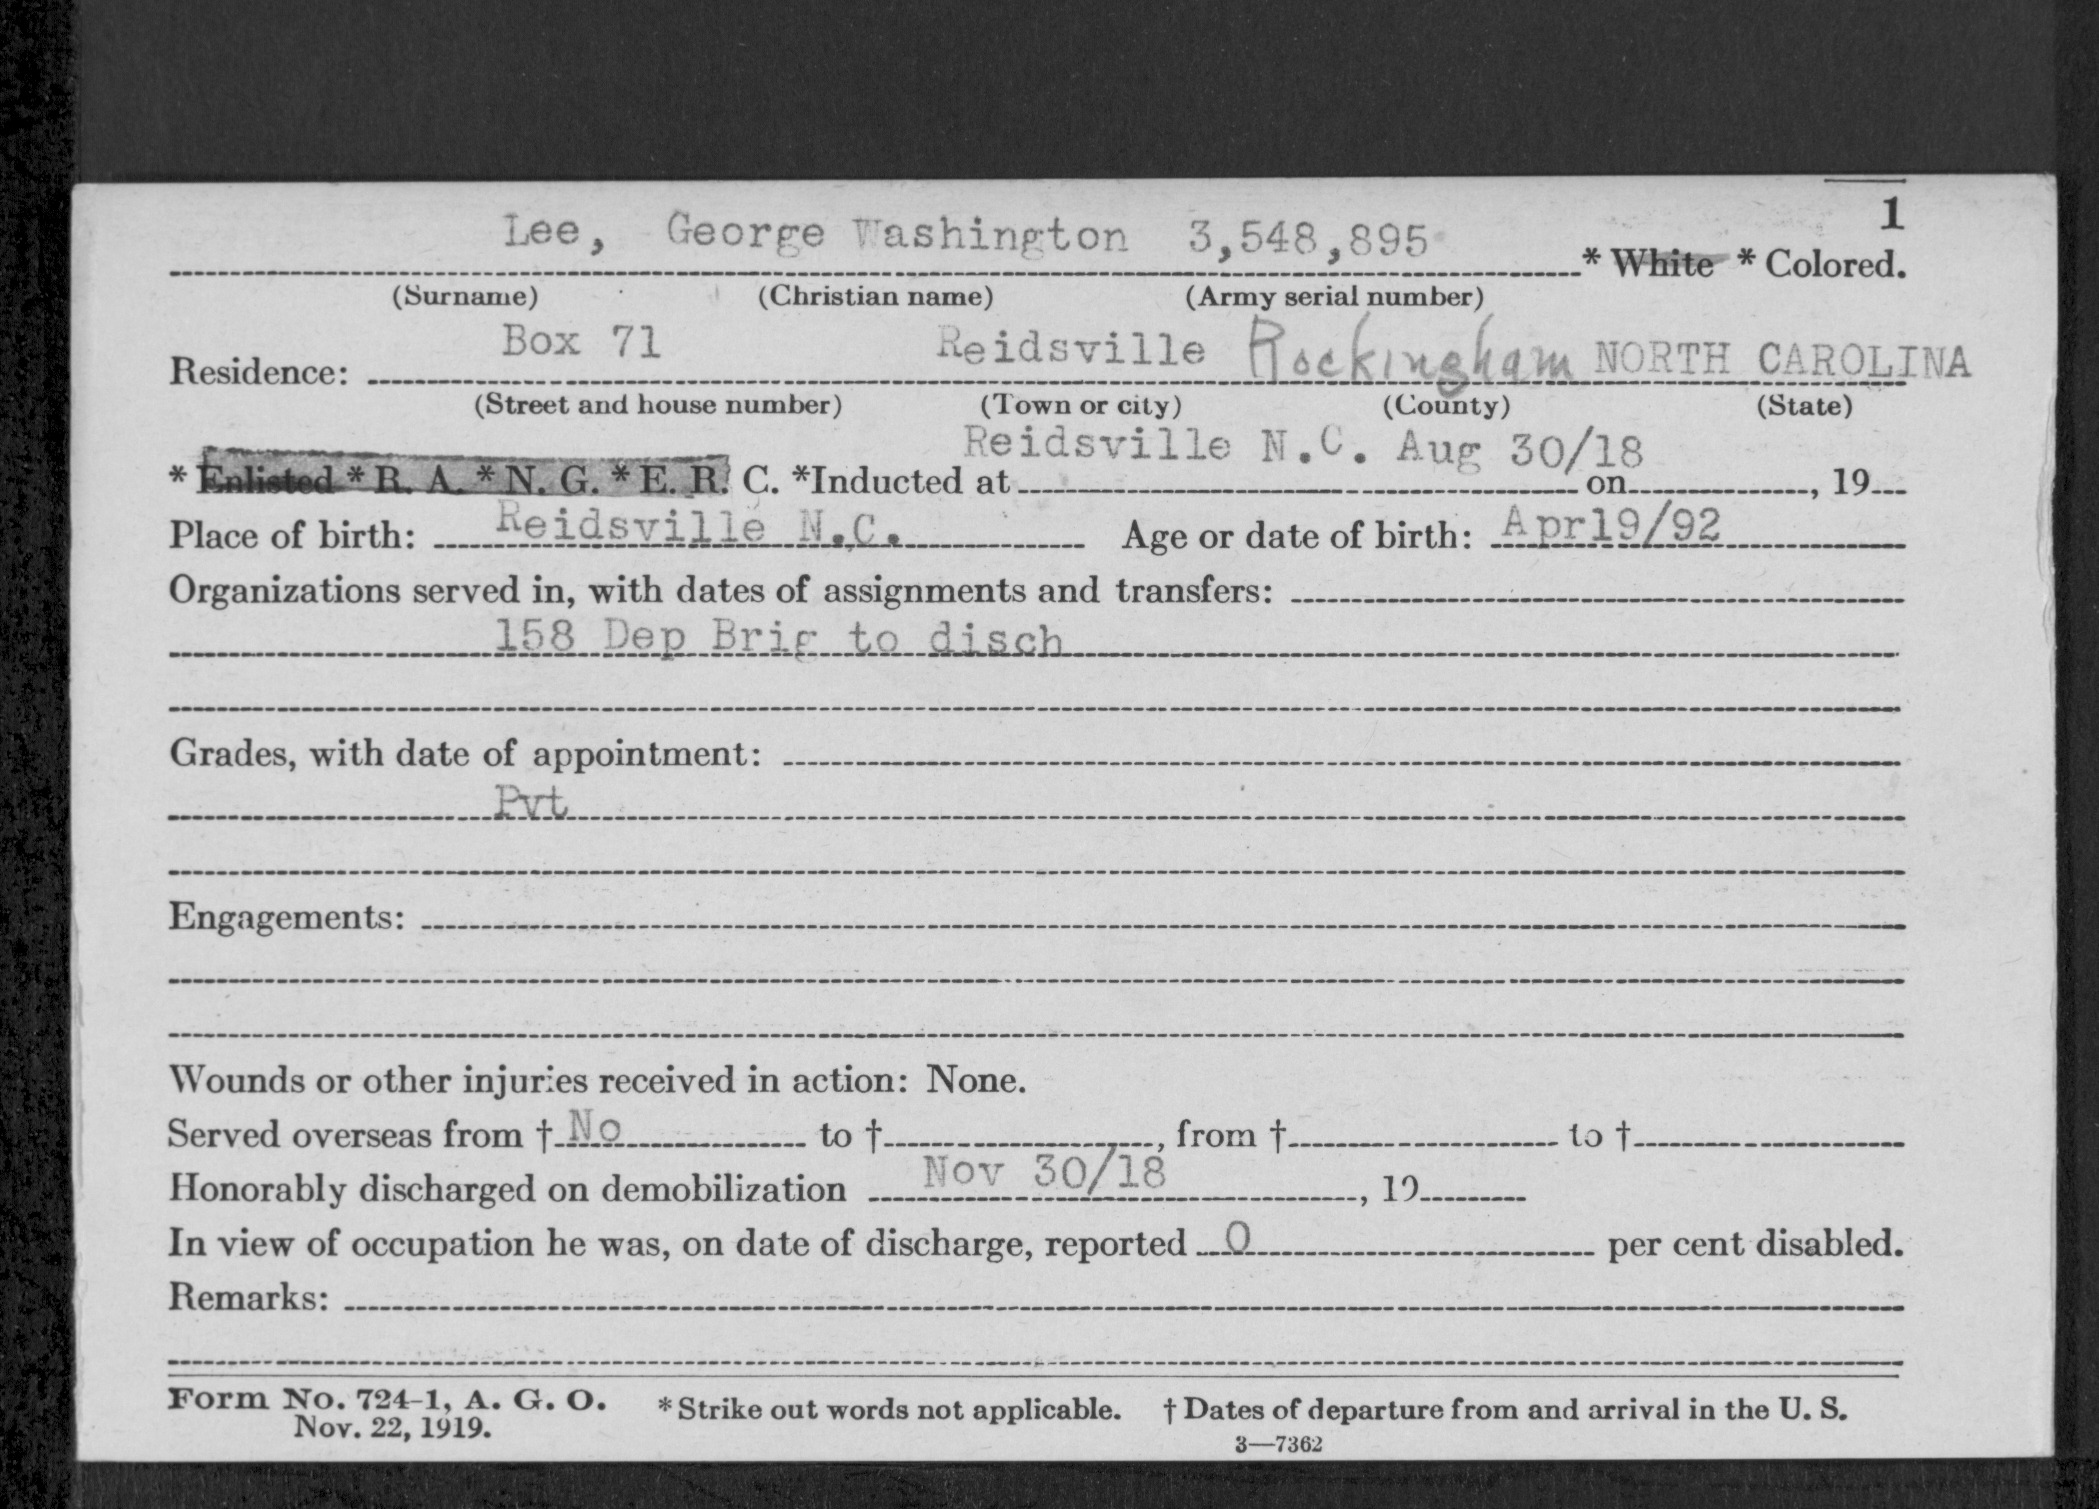 1
Lee, George Washington 3,548,895 * White * Colored.
(Surname) (Christian name) (Army serial number)
Residence: Box 71 Reidsville Rockingham NORTH CAROLINA
(Street and house number) (Town or city) (County) (State)
Reidsville N.C. Aug 30/18
* Enlisted * R. A. * N. G. * E. R. C. *Inducted at on , 19
Place of birth: Reidsville N.C. Age or date of birth: Apr19/92
Organizations served in, with dates of assignments and transfers:
158 Dep Brig to disch
Grades, with date of appointment:
Pvt
Engagements:
Wounds or other injuries received in action: None.
Served overseas from † No to † , from † to †
Honorably discharged on demobilization Nov 30/18 , 19
In view of occupation he was, on date of discharge, reported 0 per cent disabled.
Remarks:
Form No. 724-1, A. G. O. * Strike out words not applicable. † Dates of departure from and arrival in the U. S.
Nov. 22, 1919.
3—7362